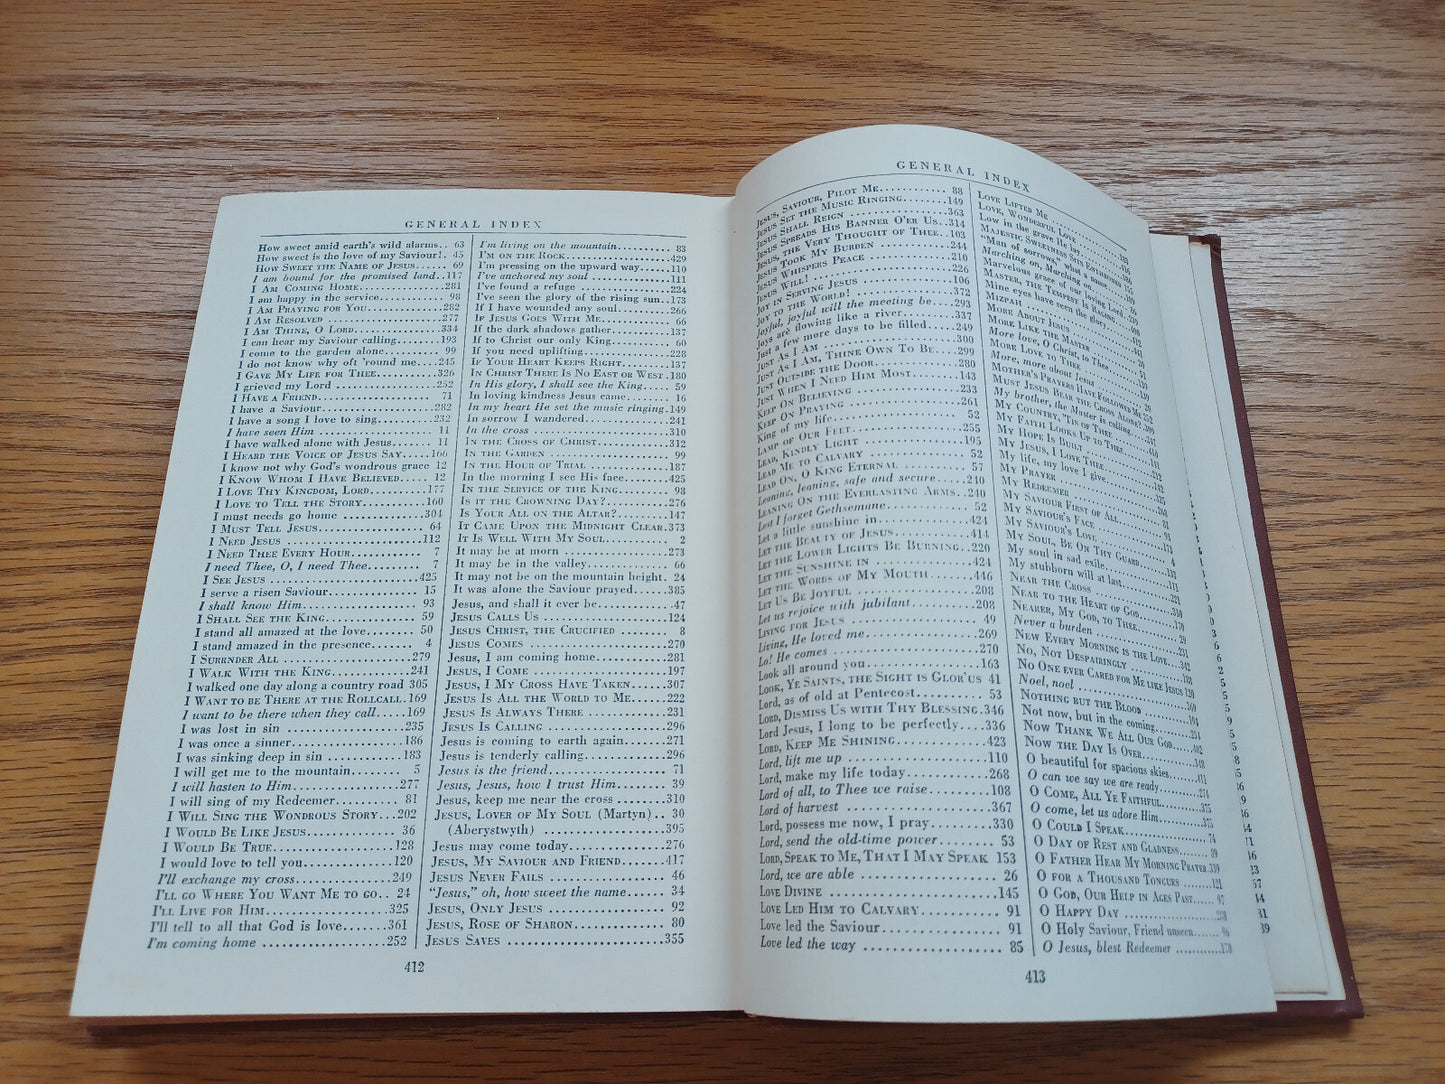 GENERAL INDEX
How sweet amid earth's wild alarms.. 63
How sweet is the love of my Saviour!. 45
HOW SWEET THE NAME OF JESUS........ 69
I am bound for the promised land..117
I AM COMING HOME................281
I am happy in the service.......... 98
I AM PRAYING FOR YOU..............282
I AM RESOLVED....................277
I AM THINE, O LORD................334
I can hear my Saviour calling.......193
I come to the garden alone.......... 99
I do not know why oft 'round me....245
I GAVE MY LIFE FOR THEE...........326
I grieved my Lord.................252
I HAVE A FRIEND.................... 71
I have a Saviour...................282
I have a song I love to sing........232
I have seen Him.................... 11
I have walked alone with Jesus...... 11
I HEARD THE VOICE OF JESUS SAY.....166
I know not why God's wondrous grace 12
I KNOW WHOM I HAVE BELIEVED........ 12
I LOVE THY KINGDOM, LORD..........177
I LOVE TO TELL THE STORY..........160
I must needs go home...............304
I MUST TELL JESUS.................. 64
I NEED JESUS.....................112
I NEED THEE EVERY HOUR............ 7
I need Thee, O, I need Thee........ 7
I SEE JESUS.......................425
I serve a risen Saviour............. 15
I shall know Him................... 93
I SHALL SEE THE KING............... 59
I stand all amazed at the love....... 50
I stand amazed in the presence...... 4
I SURRNDER ALL...................279
I WALK WITH THE KING.............241
I walked one day along a country road 305
I WANT TO BE THERE AT THE ROLLCALL.169
I want to be there when they call....169
I was lost in sin..................235
I was once a sinner................186
I was sinking deep in sin...........183
I will get me to the mountain....... 5
I will hasten to Him...............277
I will sing of my Redeemer.......... 81
I WILL SING THE WONDROUS STORY...202
I WOULD BE LIKE JESUS............. 36
I WOULD BE TRUE..................128
I would love to tell you............120
I'll exchange my cross.............249
I'LL GO WHERE YOU WANT ME TO GO.. 24
I'LL LIVE FOR HIM................325
I'll tell to all that God is love......361
I'm coming home.................252
I'm living on the mountain......... 83
I'M ON THE ROCK..................429
I'm pressing on the upward way.....110
I've anchored my soul..............111
I've found a refuge................224
I've seen the glory of the rising sun..173
If I have wounded any soul.........266
IF JESUS GOES WITH ME............. 66
If the dark shadows gather..........137
If to Christ our only King.......... 60
If you need uplifting...............228
IF YOUR HEART KEEPS RIGHT.........137
IN CHRIST THERE IS NO EAST OR WEST.180
In His glory, I shall see the King.... 59
In loving kindness Jesus came....... 16
In my heart He set the music ringing.149
In sorrow I wandered..............241
In the cross......................310
IN THE CROSS OF CHRIST............312
IN THE GARDEN.................... 99
IN THE HOUR OF TRIAL.............187
In the morning I see His face.......425
IN THE SERVICE OF THE KING......... 98
IS IT THE CROWNING DAY?..........276
IS YOUR ALL ON THE ALTAR?........147
IT CAME UPON THE MIDNIGHT CLEAR.373
IT IS WELL WITH MY SOUL........... 2
It may be at morn.................273
It may be in the valley............. 66
It may not be on the mountain height. 24
It was alone the Saviour prayed......385
Jesus, and shall it ever be.......... 47
JESUS CALLS US...................124
JESUS CHRIST, THE CRUCIFIED........ 8
JESUS COMES......................270
Jesus, I am coming home...........281
JESUS, I COME....................197
JESUS, I MY CROSS HAVE TAKEN.....307
JESUS IS ALL THE WORLD TO ME......222
JESUS IS ALWAYS THERE............231
JESUS IS CALLING..................296
Jesus is coming to earth again......271
Jesus is tenderly calling............296
Jesus is the friend................. 71
Jesus, Jesus, how I trust Him....... 39
Jesus, keep me near the cross.......310
JESUS, LOVER OF MY SOUL (Martyn).. 30
(Aberystwyth)...................395
Jesus may come today..............276
JESUS, MY SAVIOUR AND FRIEND......417
JESUS NEVER FAILS................ 46
"Jesus," oh, how sweet the name..... 34
JESUS, ONLY JESUS................. 92
JESUS, ROSE OF SHARON............. 80
JESUS SAVES.....................355
412
GENERAL INDEX
JESUS, SAVIOUR, PILOT ME........... 88
JESUS SET THE MUSIC RINGING.......149
JESUS SHALL REIGN................363
JESUS SPREADS HIS BANNER O'ER US..314
JESUS, THE VERY THOUGHT OF THEE..103
JESUS TOOK MY BURDEN............244
JESUS WHISPERS PEACE.............210
JESUS WILL!......................226
JOY IN SERVING JESUS..............106
JOY TO THE WORLD!................372
Joyful, joyful will the meeting be....293
Joys are flowing like a river........337
Just a few more days to be filled.....249
JUST AS I AM.....................300
JUST AS I AM, THINE OWN TO BE....299
JUST OUTSIDE THE DOOR............280
JUST WHEN I NEED HIM MOST.......143
KEEP ON BELIEVING................233
KEEP ON PRAYING.................261
King of my life.................... 52
LAMP OF OUR FEET.................255
LEAD, KINDLY LIGHT...............195
LEAD ME TO CALVARY............... 52
LEAD ON, O KING ETERNAL.......... 57
Leaning, leaning, safe and secure.....240
LEANING ON THE EVERLASTING ARMS..240
Lest I forget Gethsemane........... 52
Let a little sunshine in.............424
LET THE BEAUTY OF JESUS...........414
LET THE LOWER LIGHTS BE BURNING..220
LET THE SUNSHINE IN..............424
LET THE WORDS OF MY MOUTH.......446
LET US BE JOYFUL.................208
Let us rejoice with jubilant........208
LIVING FOR JESUS.................. 49
Living, He loved me...............269
Lo! He comes.....................270
Look all around you...............163
LOOK, YE SAINTS, THE SIGHT IS GLOR'US 41
Lord, as of old at Pentecost......... 53
LORD, DISMISS US WITH THY BLESSING.346
Lord Jesus, I long to be perfectly....336
LORD, KEEP ME SHINING............423
Lord, lift me up...................110
Lord, make my life today...........268
Lord of all, to Thee we raise.......108
Lord of harvest...................367
Lord, possess me now, I pray.......330
Lord, send the old-time power....... 53
LORD, SPEAK TO ME, THAT I MAY SPEAK 153
Lord, we are able................. 26
LOVE DIVINE.....................145
LOVE LED HIM TO CALVARY........... 91
Love led the Saviour............... 91
Love led the way.................. 85
LOVE LIFTED ME
LOVE, WONDERFUL LOVE
Low in the grave He lay
MAJESTIC SWEETNESS SITS ENTHRONED
"Man of sorrows," what a name
Marching on, Marching on
Marvelous grace of our loving Lord
MASTER, THE TEMPEST IS RAGING
Mine eyes have seen the glory
MIZPAH
MORE ABOUT JESUS
MORE LIKE THE MASTER
More love, O Christ, to Thee
MORE LOVE TO THEE
More, more about Jesus
MOTHER'S PRAYERS HAVE FOLLOWED ME
MUST JESUS BEAR THE CROSS ALONE
My brother, the Master is calling
MY COUNTRY, 'TIS OF THEE
MY FAITH LOOKS UP TO THEE
MY HOPE IS BUILT
MY JESUS, I LOVE THEE
My life, my love I give
MY PRAYER
MY REDEEMER
MY SAVIOUR FIRST OF ALL
MY SAVIOUR'S FACE
MY SAVIOUR'S LOVE
MY SOUL, BE ON THY GUARD
My soul in sad exile
My stubborn will at last
NEAR THE CROSS
NEAR TO THE HEART OF GOD
NEARER, MY GOD, TO THEE
Never a burden
NEW EVERY MORNING IS THE LOVE
NO, NOT DESPAIRINGLY
NO ONE EVER CARED FOR ME LIKE JESUS
Noel, noel
NOTHING BUT THE BLOOD
Not now, but in the coming
NOW THANK WE ALL OUR GOD
NOW THE DAY IS OVER
O beautiful for spacious skies
O can we say we are ready
O COME, ALL YE FAITHFUL
O come, let us adore Him
O COULD I SPEAK
O DAY OF REST AND GLADNESS
O FATHER HEAR MY MORNING PRAYER
O FOR A THOUSAND TONGUES
O GOD, OUR HELP IN AGES PAST
O HAPPY DAY
O Holy Saviour, Friend unseen
O Jesus, blest Redeemer
413